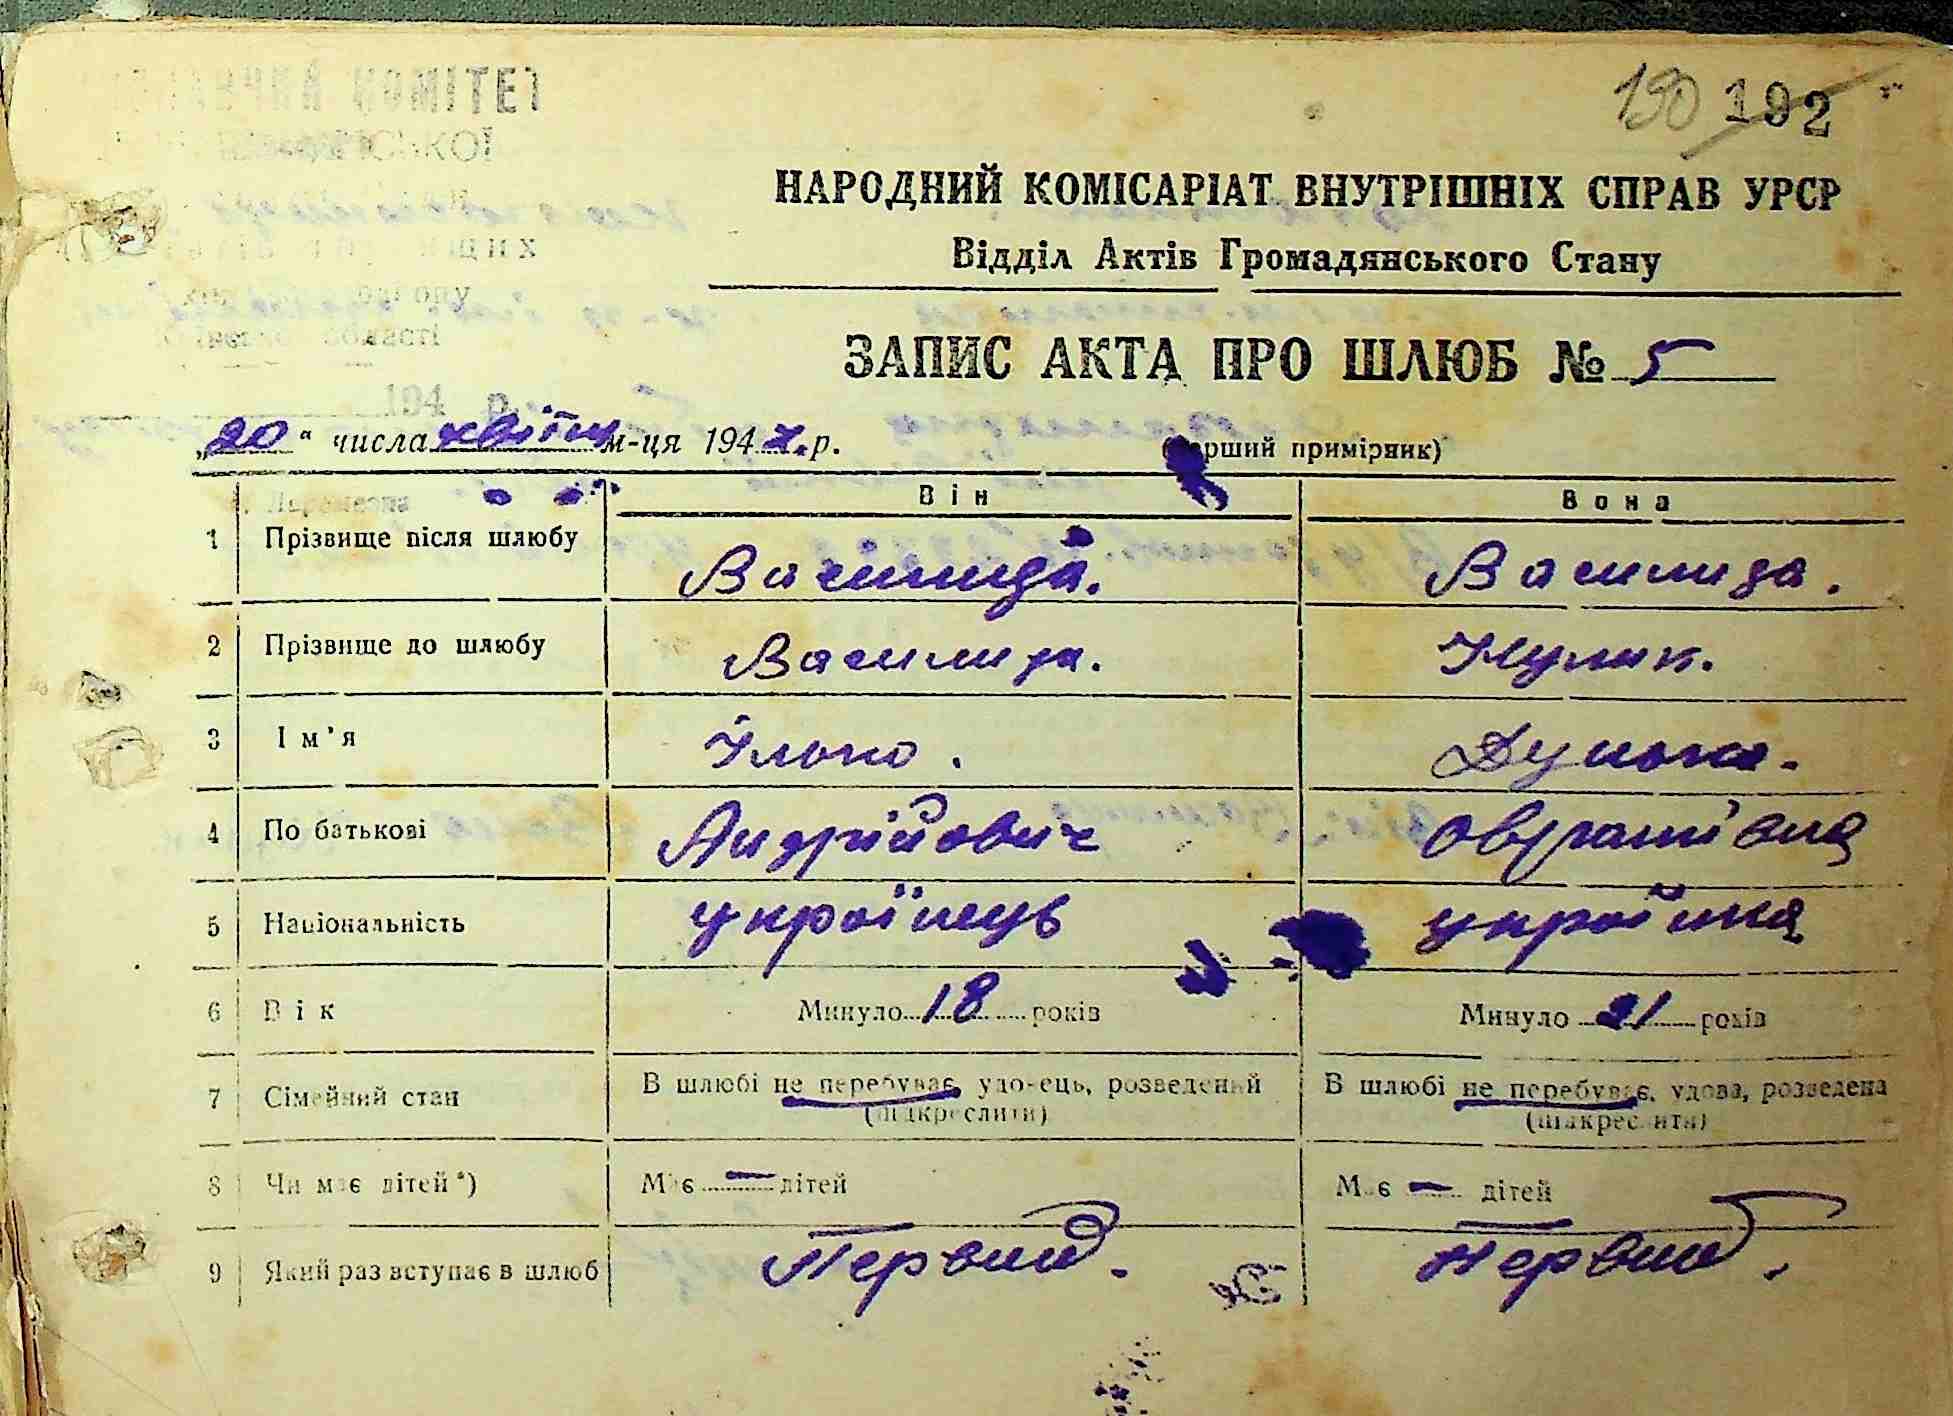 КОМІТЕТ
190 192
НАРОДНИЙ КОМІСАРІАТ ВНУТРІШНІХ СПРАВ УРСР
Відділ Актів Громадянського Стану
області
ЗАПИС АКТА ПРО ШЛЮБ № 5
194 р.
„20" числа квітня м-ця 1947 р. (перший примірник)
Він Вона
1 Прізвище після шлюбу Василида. Василида.
2 Прізвище до шлюбу Василида. Кулик.
3 Ім'я Ілько. Дунька.
4 По батькові Андрійович Оврамівна
5 Національність українець українка
6 Вік Минуло 18 років Минуло 21 років
7 Сімейний стан В шлюбі не перебуває, удовець, розведений В шлюбі не перебуває, удова, розведена
(підкреслити) (підкреслити)
8 Чи має дітей*) Має — дітей Має — дітей
9 Який раз вступає в шлюб Первий. Первий.